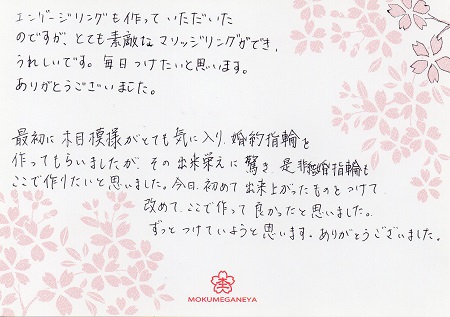 エンゲージリングも作っていただいた
のですが、とても素敵なマリッジリングができ、
うれしいです。毎日つけたいと思います。
ありがとうございました。
最初に木目模様がとても気に入り、婚約指輪を
作ってもらいましたが、その出来栄えに驚き、是非結婚指輪も
ここで作りたいと思いました。今日、初めて出来上がったものをつけて
改めて、ここで作って良かったと思いました。
ずっとつけていようと思います。ありがとうございました。
MOKUMEGANEYA